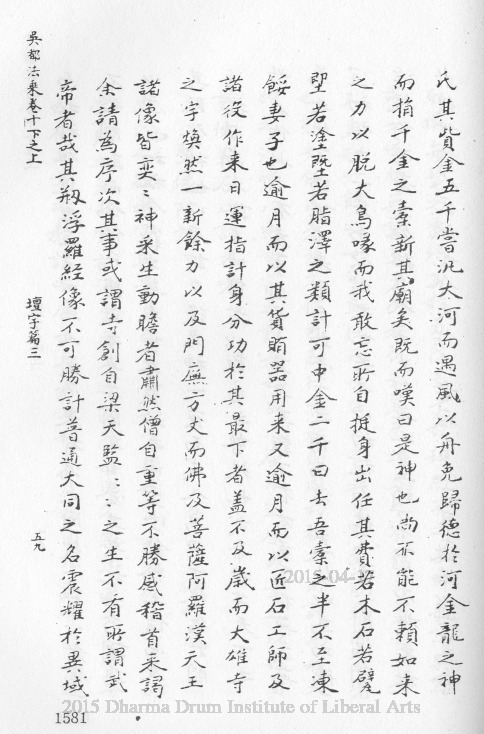 氏其貲金五千嘗汎大河而遇風以舟免歸德於河金龍之神
而捐千金之橐新其廟矣既而嘆曰是神也尚不能不賴如来
之力以脱大鳥喙而我敢忘所自挺身出任其費若木石若甓
堊若塗塈若脂澤之類計可中金二千曰去吾橐之半不至凍
餒妻子也逾月而以其貨賄器用来又逾月而以匠石工師及
諸役作来日運指計身分功於其最下者盖不及歲而大雄寺
之宇煥然一新餘力以及門廡方丈而佛及菩薩阿羅漢天王
諸像皆奕〻神采生動瞻者肅然僧自重等不勝感稽首来謁
余請為序次其事或謂寺創自梁天監〻〻之生不有所謂武
帝者哉其剏浮羅經像不可勝計普通大同之名震耀於異域
吳都法乘卷十下之上
壇宇篇三
五九
1581
2015-04-
2015 Dharma Drum Institute of Liberal Arts